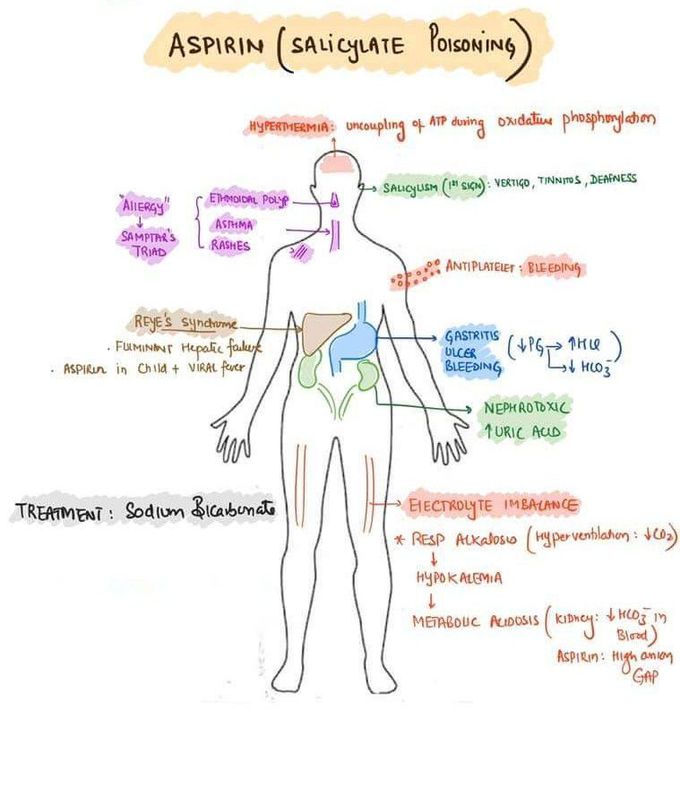 ASPIRIN (SALICYLATE POISONING)
HYPERTHERMIA: uncoupling of ATP during oxidative phosphorylation
SALICYLISM (1st SIGN): VERTIGO, TINNITOS, DEAFNESS
"Allergy"
↓
SAMPTAR'S
TRIAD
ETHMOIDAL POLYP
ASTHMA
RASHES
ANTIPLATELET: BLEEDING
REYE'S syndrome
. FULMINANT Hepatic failure
. ASPIRIN in Child + VIRAL fever
GASTRITIS
ULCER
BLEEDING
(↓PG → ↑HCl
↓ HCO3-)
NEPHROTOXIC
↑ URIC ACID
TREATMENT: Sodium Bicarbonate
ELECTROLYTE IMBALANCE
* RESP AlKAlosis (Hyperventilation: ↓CO2)
↓
HYPOKALEMIA
↓
METABOLIC ACIDOSIS (Kidney: ↓HCO3- in
Blood)
ASPIRIN: High anion
GAP